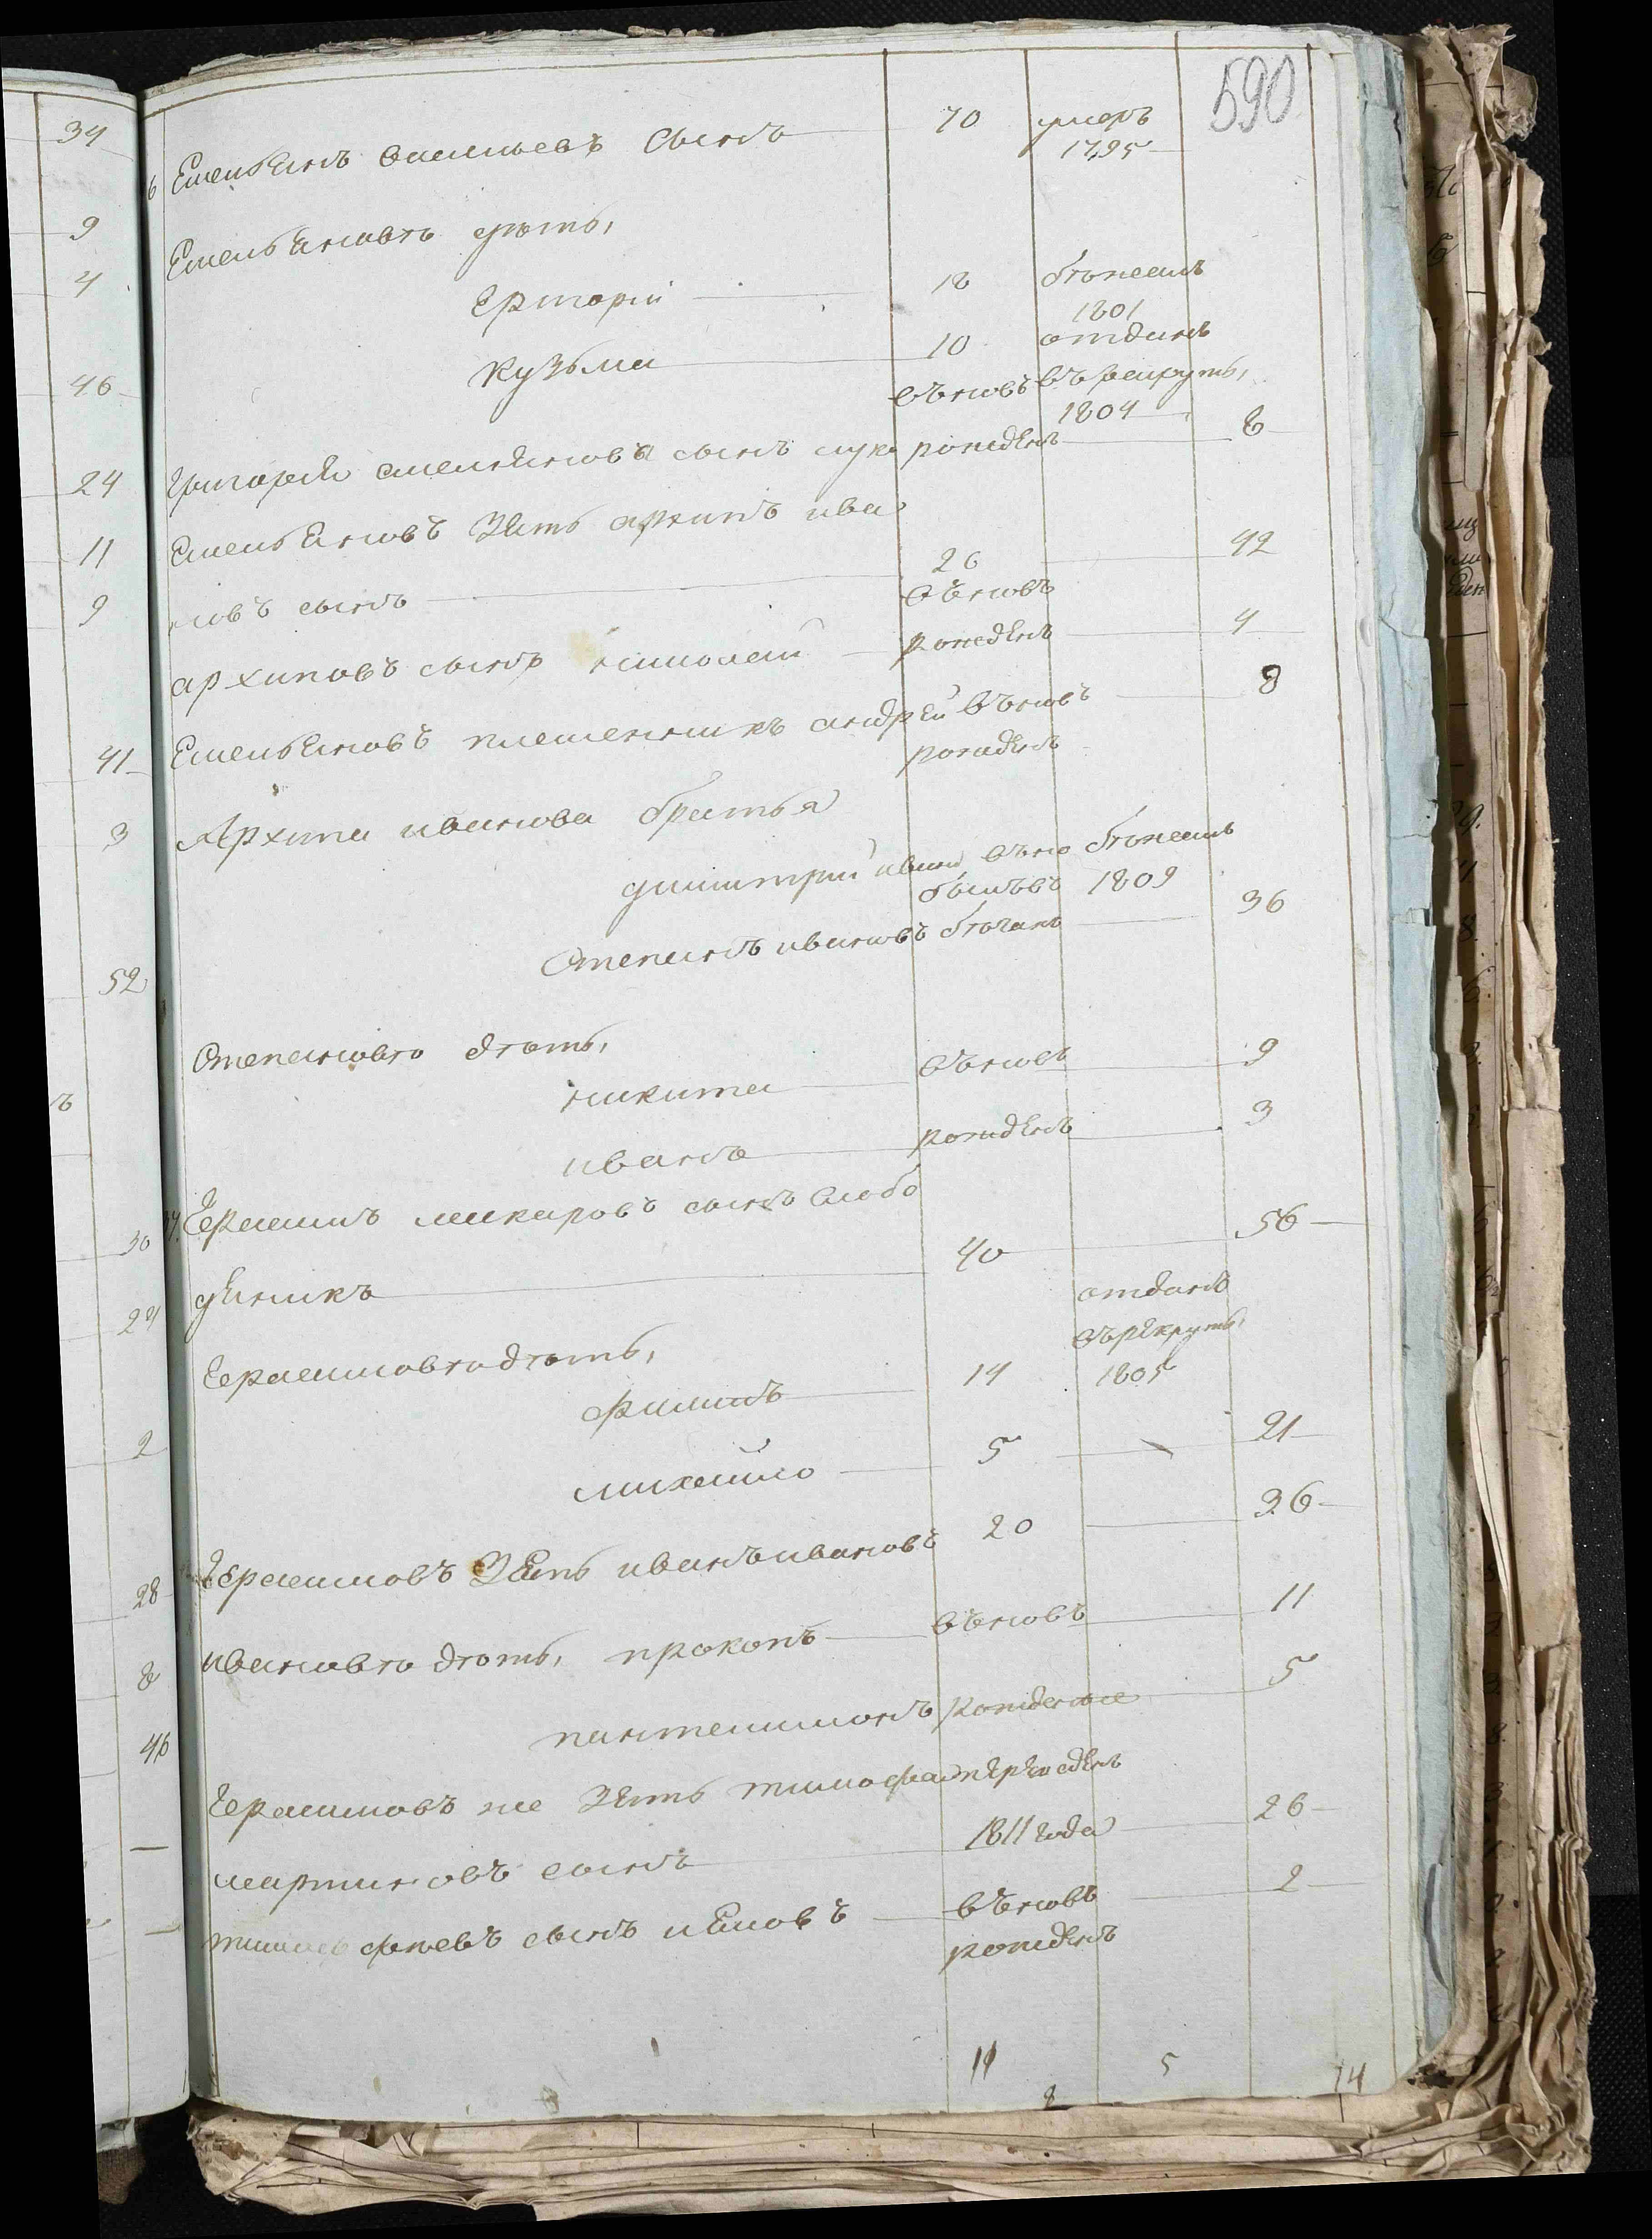 590
34
Емельянъ васильевъ Сынъ 70 умеръ
6
1795
9
Емельяновы дѣти,
4
Григорій 18 бѣжалъ
1801
Кузьма 10 отданъ
46
вънов въ рекруты,
1804
24
Григорья емельянова сынъ лука рожденъ 8
Емельяновъ Зять архипъ ива
11
новъ сынъ 26 42
9
вновь
архиповъ сынъ николай рожденъ 4
Емельяновъ племенникъ андрей вновь 8
41
рожденъ
3
Архипа иванова братья
димитрий иванов бѣжалъ
1809
Степанъ ивановъ 36
52
Степановы дѣти,
никита вновь 9
иванъ рожденъ 3
ъ
Герасимъ макаровъ сынъ Слобо
30
40 56
дяникъ
24
отданъ
въ рекруты,
Герасимовы дѣти,
филипъ 14 1805
2
михайло 5 21
Герасимовъ Зять иванъ ивановъ 20 36
28
ивановы дѣти, прокопъ вновь 11
8
пантелимонъ рожденые 5
46
Герасимовъ же Зять тимофей
мартиновъ сынъ 1811 года 26
тимофеевъ сынъ вновь 2
рожденъ
11 5 14
2